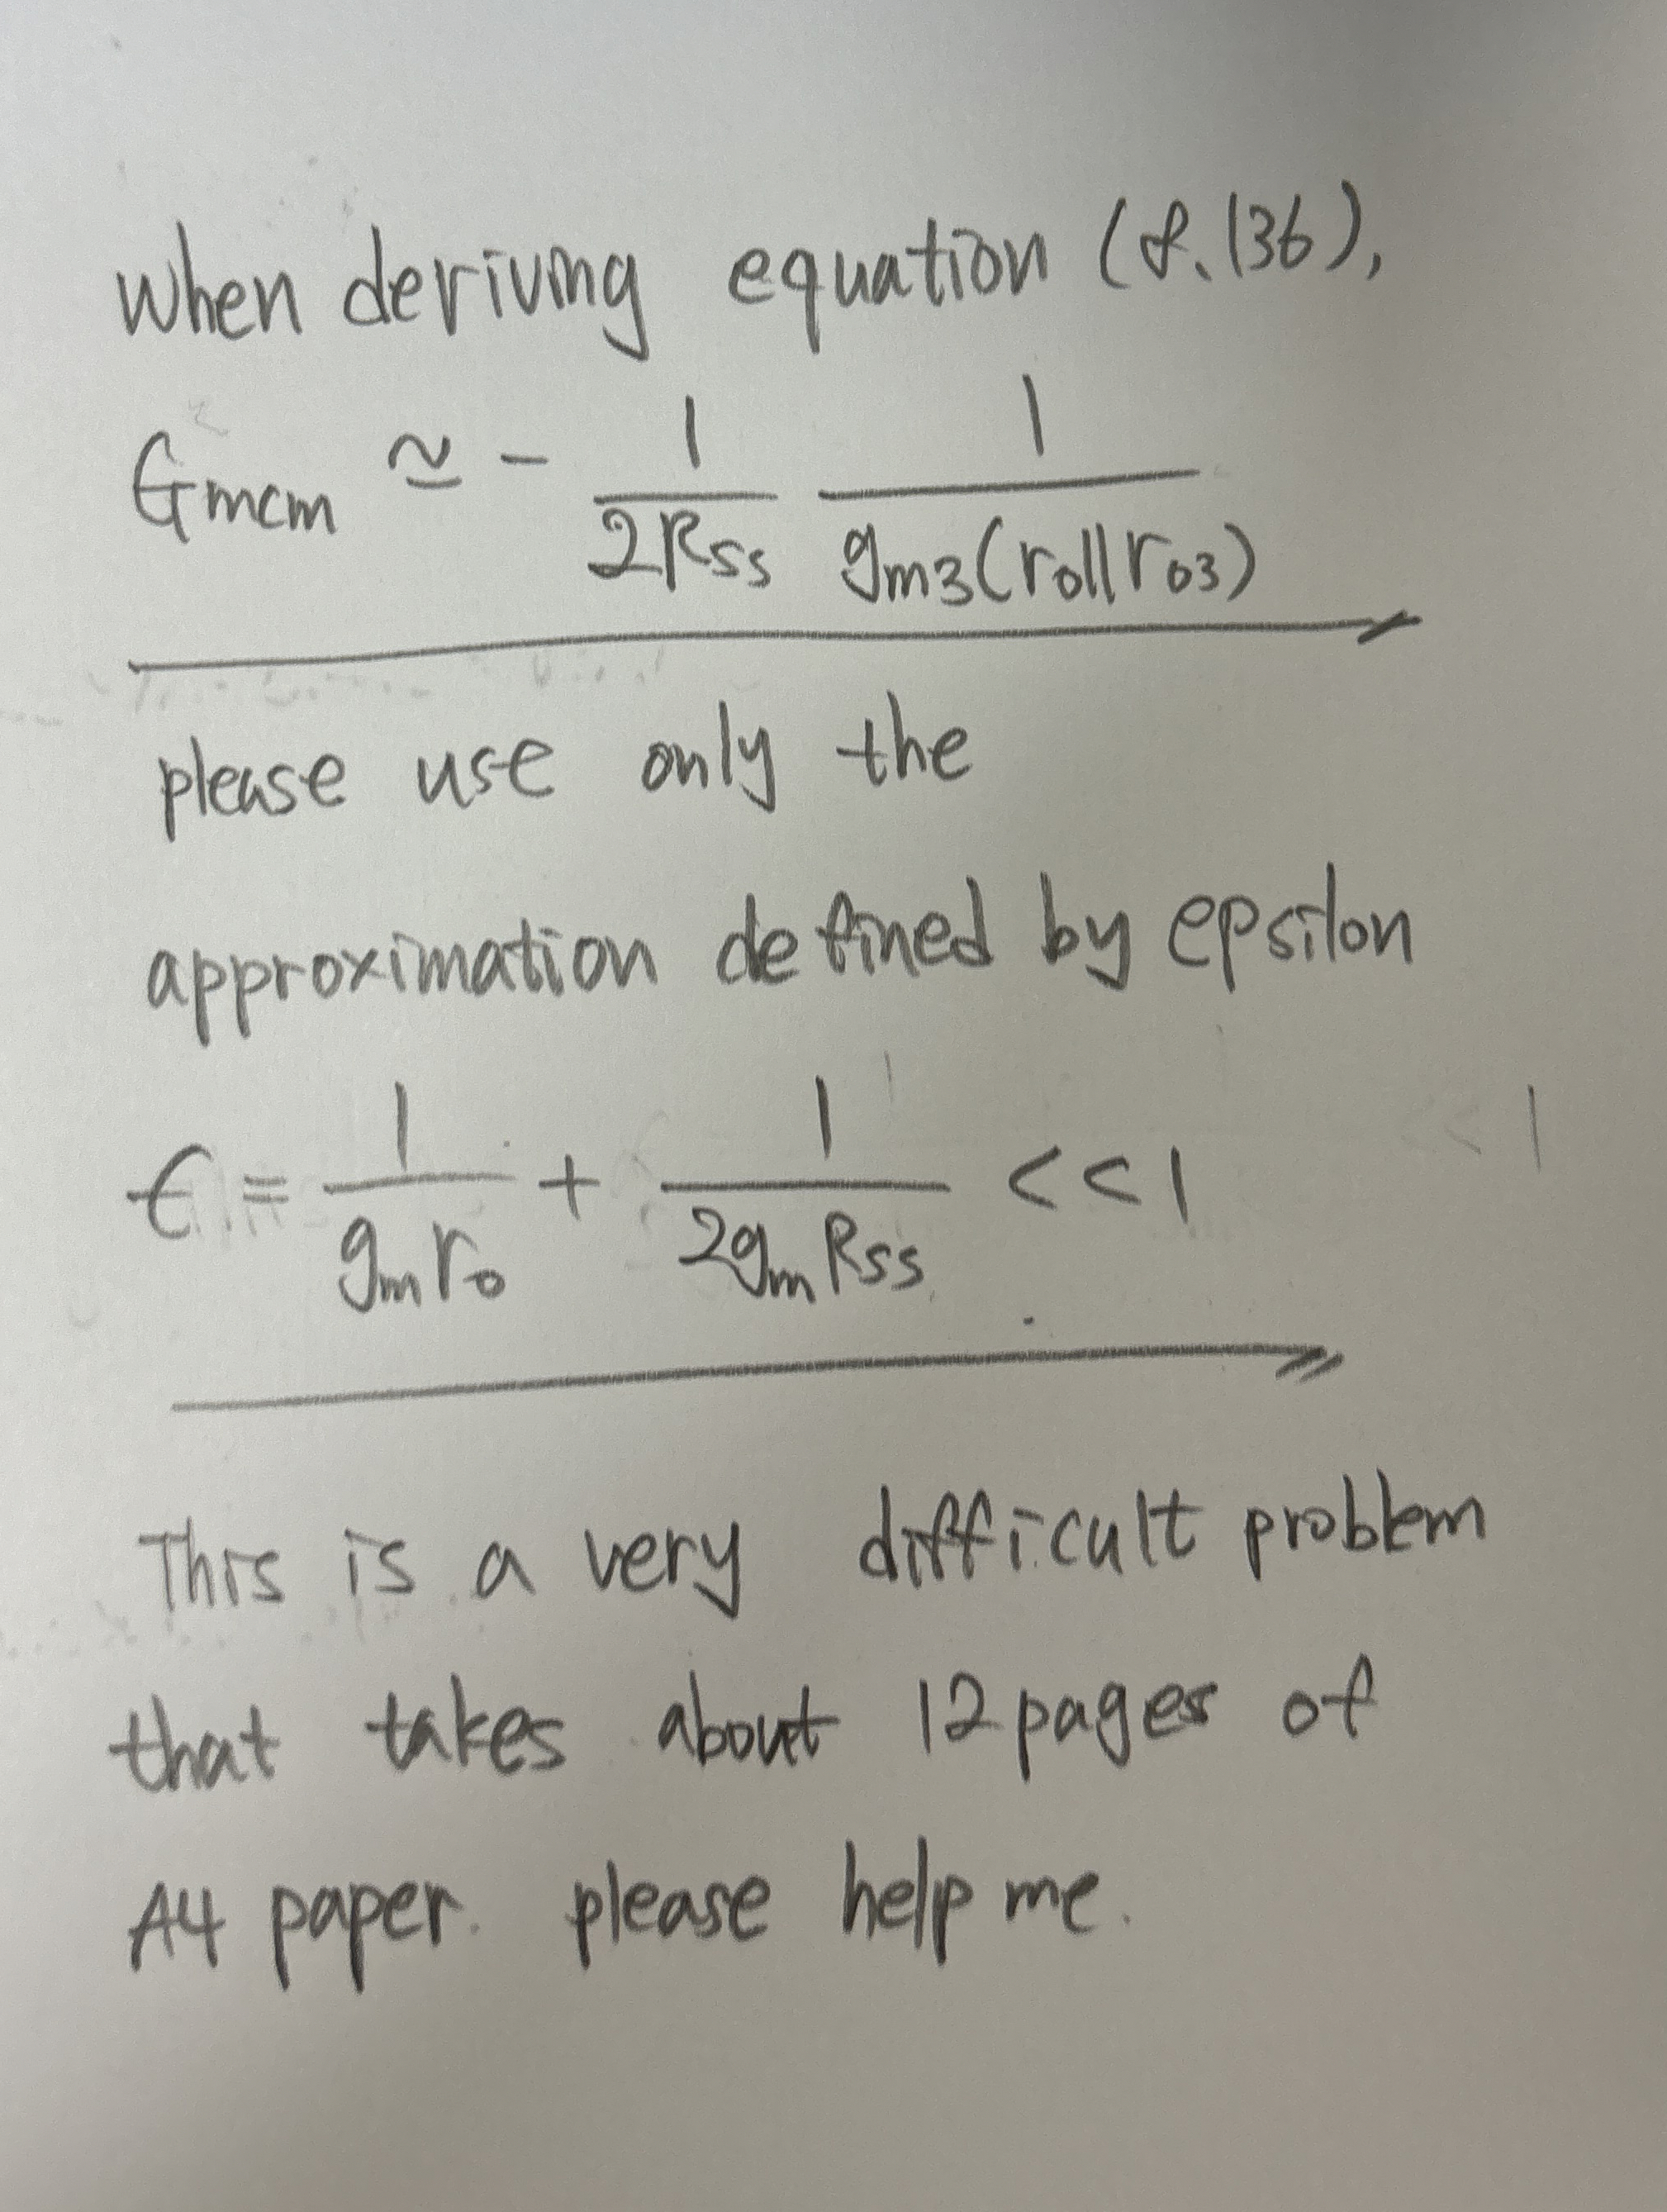 When deriving equation (8.136),
Gmcm ≃ - 1/2Rss 1/gm3(ro||ro3)
please use only the
approximation defined by epsilon
ϵ = 1/gmro + 1/2gmRss <<1
This is a very difficult problem
that takes about 12 pages of
A4 paper. please help me.